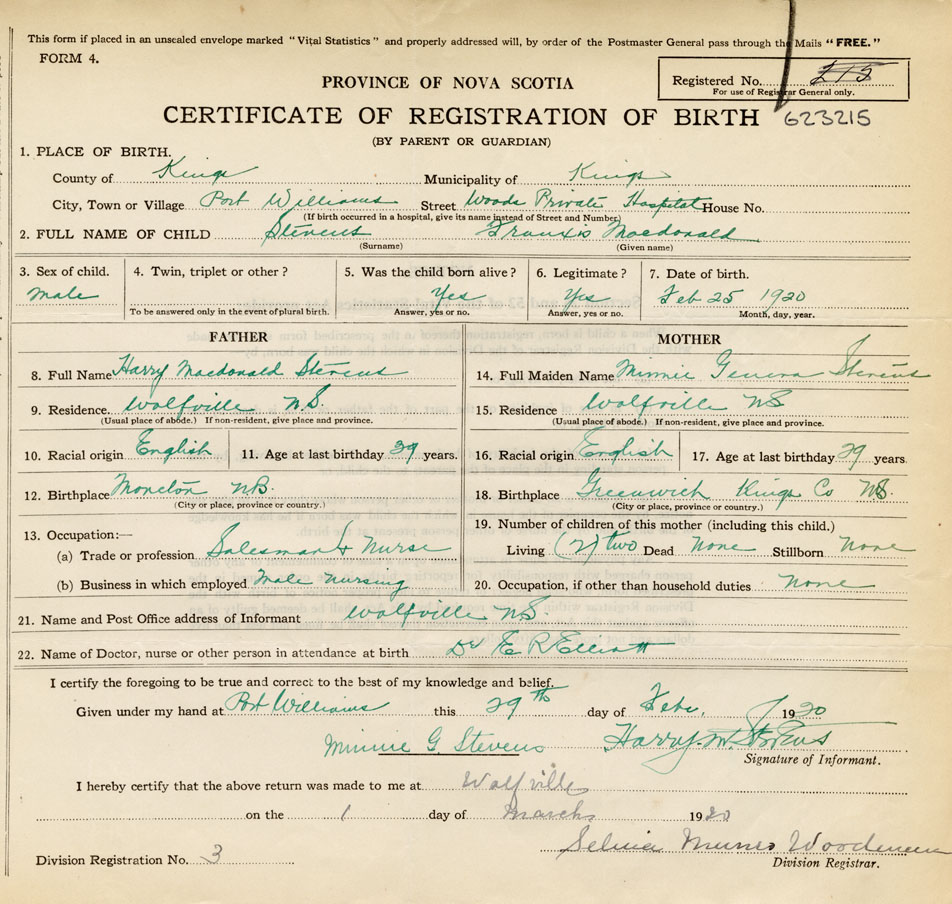 This form if placed in an unsealed envelope marked "Vital Statistics" and properly addressed will, by order of the Postmaster General pass through the Mails "FREE."
FORM 4.
PROVINCE OF NOVA SCOTIA
Registered No. 215
For use of Registrar General only.
CERTIFICATE OF REGISTRATION OF BIRTH 623215
(BY PARENT OR GUARDIAN)
1. PLACE OF BIRTH.
County of Kings Municipality of Kings
City, Town or Village Port Williams Street Woods Private Hospital House No.
(If birth occurred in a hospital, give its name instead of Street and Number)
2. FULL NAME OF CHILD Stevens Francis Macdonald
(Surname) (Given name)
3. Sex of child. 4. Twin, triplet or other? 5. Was the child born alive? 6. Legitimate? 7. Date of birth.
male Yes Yes Feb 25 1920
To be answered only in the event of plural birth. Answer, yes or no. Answer, yes or no. Month, day, year.
FATHER MOTHER
8. Full Name Harry Macdonald Stevens 14. Full Maiden Name Minnie Stevens
9. Residence. Wolfville N.S. 15. Residence Wolfville NS
(Usual place of abode.) If non-resident, give place and province. (Usual place of abode.) If non-resident, give place and province.
10. Racial origin English 11. Age at last birthday 39 years. 16. Racial origin English 17. Age at last birthday 29 years.
12. Birthplace Moncton NB. 18. Birthplace Greenwich Kings Co NS.
(City or place, province or country.) (City or place, province or country.)
13. Occupation:— 19. Number of children of this mother (including this child.)
(a) Trade or profession Salesman & Nurse Living (2) two Dead None Stillborn None
(b) Business in which employed Male nursing 20. Occupation, if other than household duties None
21. Name and Post Office address of Informant Wolfville NS
22. Name of Doctor, nurse or other person in attendance at birth Dr E R Elliott
I certify the foregoing to be true and correct to the best of my knowledge and belief.
Given under my hand at Port Williams this 29th day of Feb. 1920
Minnie G. Stevens Harry M. Stevens
Signature of Informant.
I hereby certify that the above return was made to me at Wolfville
on the 1 day of March 1920
Munro
Division Registration No. 3 Division Registrar.